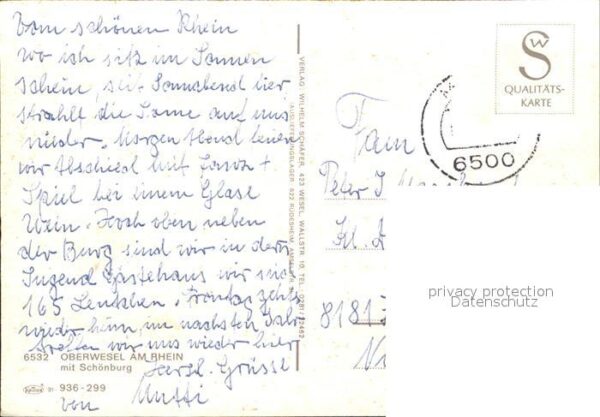 Vom schönen Rhein
wo ich sitz im Sonnen
schein, seit Sonnabend hier
strahlt die Sonne auf uns
nieder. Morgen Abend feiern
wir Abschied mit Tanz +
Spiel bei einem Glase
Wein. Hoch oben neben
der Burg sind wir in dem
Jugend Gästehaus wir sind
165 Leutchen. Freitag geht's
wieder heim, im nächsten Jahr
treffen wir uns wieder hier
Herzl. Grüsse
von Mutti
6532 OBERWESEL AM RHEIN
mit Schönburg
936-299
VERLAG WILHELM SCHÄFER, 423 WESEL, WALLSTR. 10, TEL. 0281/22462
AUSLIEFERUNGSLAGER 622 RÜDESHEIM
SW
QUALITÄTS-
KARTE
6500
Fam
Peter
8181
privacy protection
Datenschutz